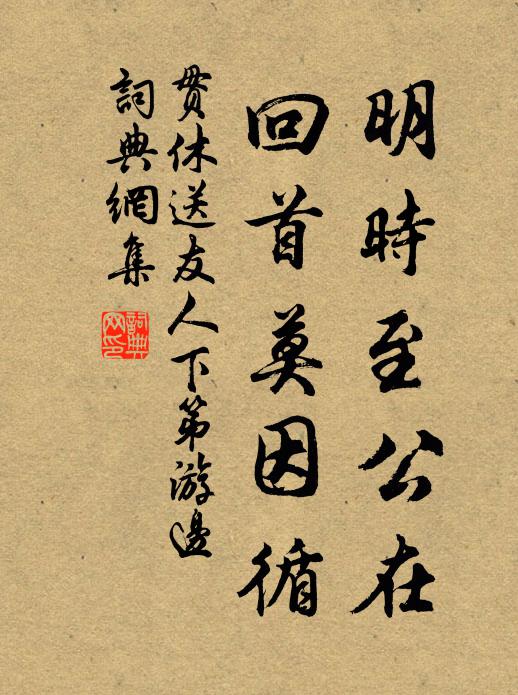 明時至公在
回首莫因循
貫休送友人下第游邊
詞典網集
詞典網印